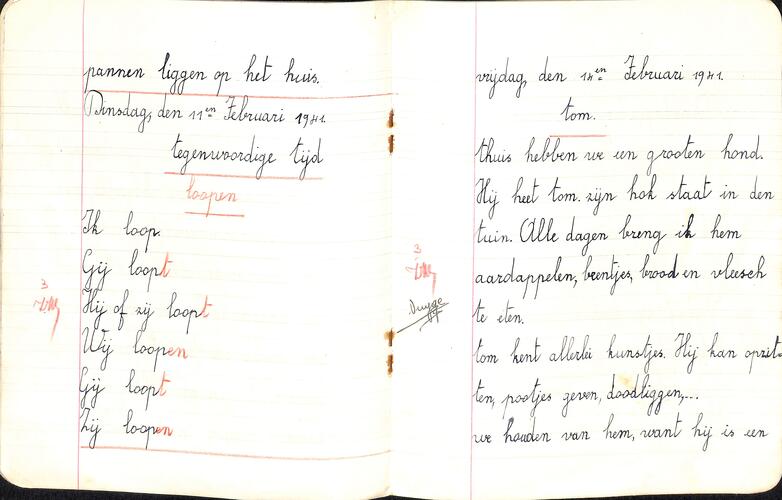 pannen liggen op het huis.
Dinsdag, den 11en Februari 1941.
tegenwoordige tijd
loopen
Ik loop.
Gij loopt
3
Hij of zij loopt
Wij loopen
Gij loopt
Zij loopen
vrijdag, den 14en Februari 1941.
tom.
thuis hebben we een grooten hond.
Hij heet tom. zijn hok staat in den
tuin. Alle dagen breng ik hem
3
aardappelen, beentjes, brood en vleesch
te eten.
tom kent allerlei kunstjes. Hij kan opzit-
ten, pootjes geven, doodliggen,...
we houden van hem, want hij is een